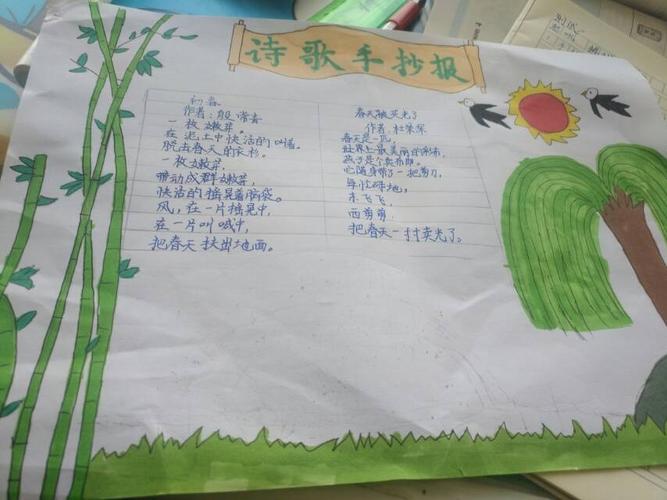 诗歌手抄报
初春
作者:殷常青
一枚嫩芽。
在泥土中快活的叫嚷。
脱去春天的衣衫。
一枚嫩芽,
带动成群嫩芽,
快活的摇晃着脑袋。
风,在一片摇晃中,
在一片叫喊中,
把春天扶出地面。
春天被卖光了
作者:杜荣琛
春天是一匹,
世界上最美丽的彩布,
燕子是个卖布郎。
它随身带了一把剪刀,
每忙碎地,
东飞飞,
西剪剪,
把春天一寸寸卖光了。